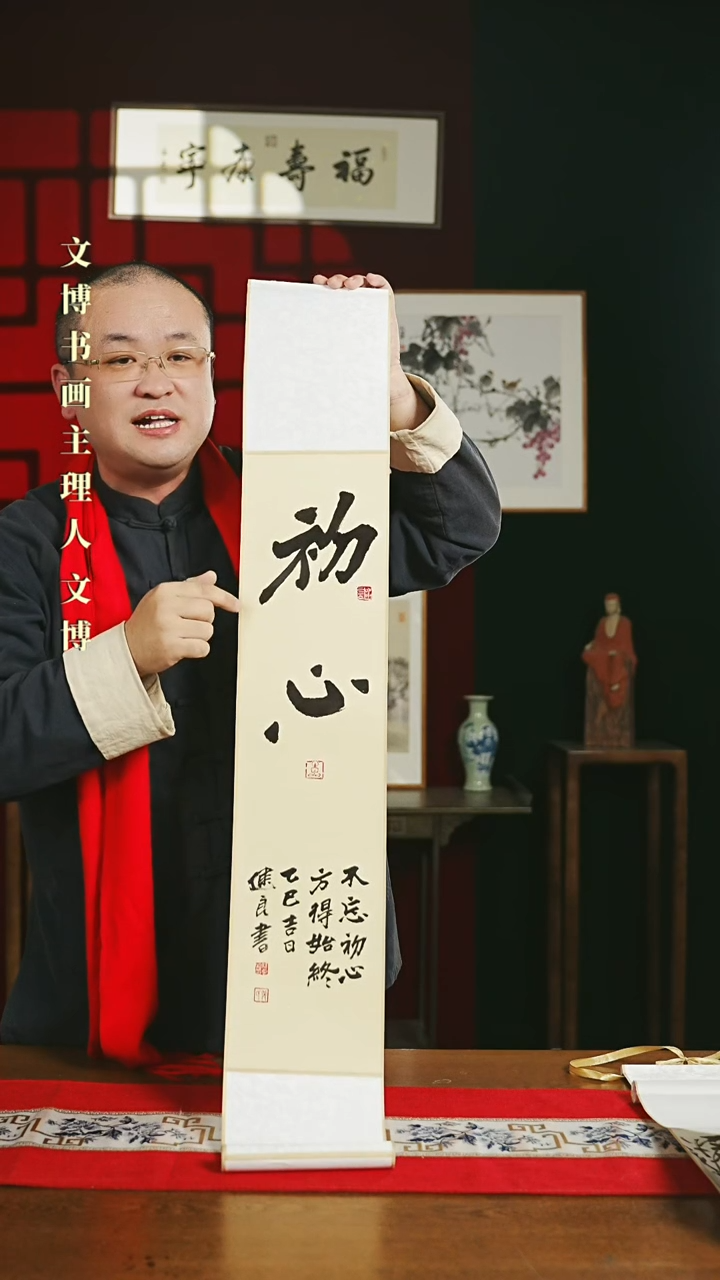 福壽康寧
文博书画主理人文博
初心
不忘初心
方得始終
乙巳吉日